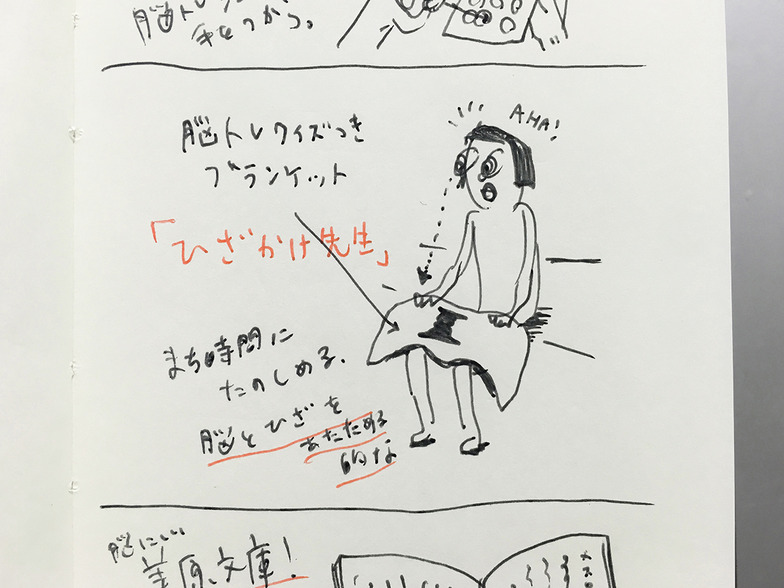 脳トレ
手をつかう。
脳トレクイズつき
ブランケット
AHA!
「ひざかけ先生」
まち時間に
たのしめる.
脳とひざを
あたためる
的な
脳にいい
文庫!